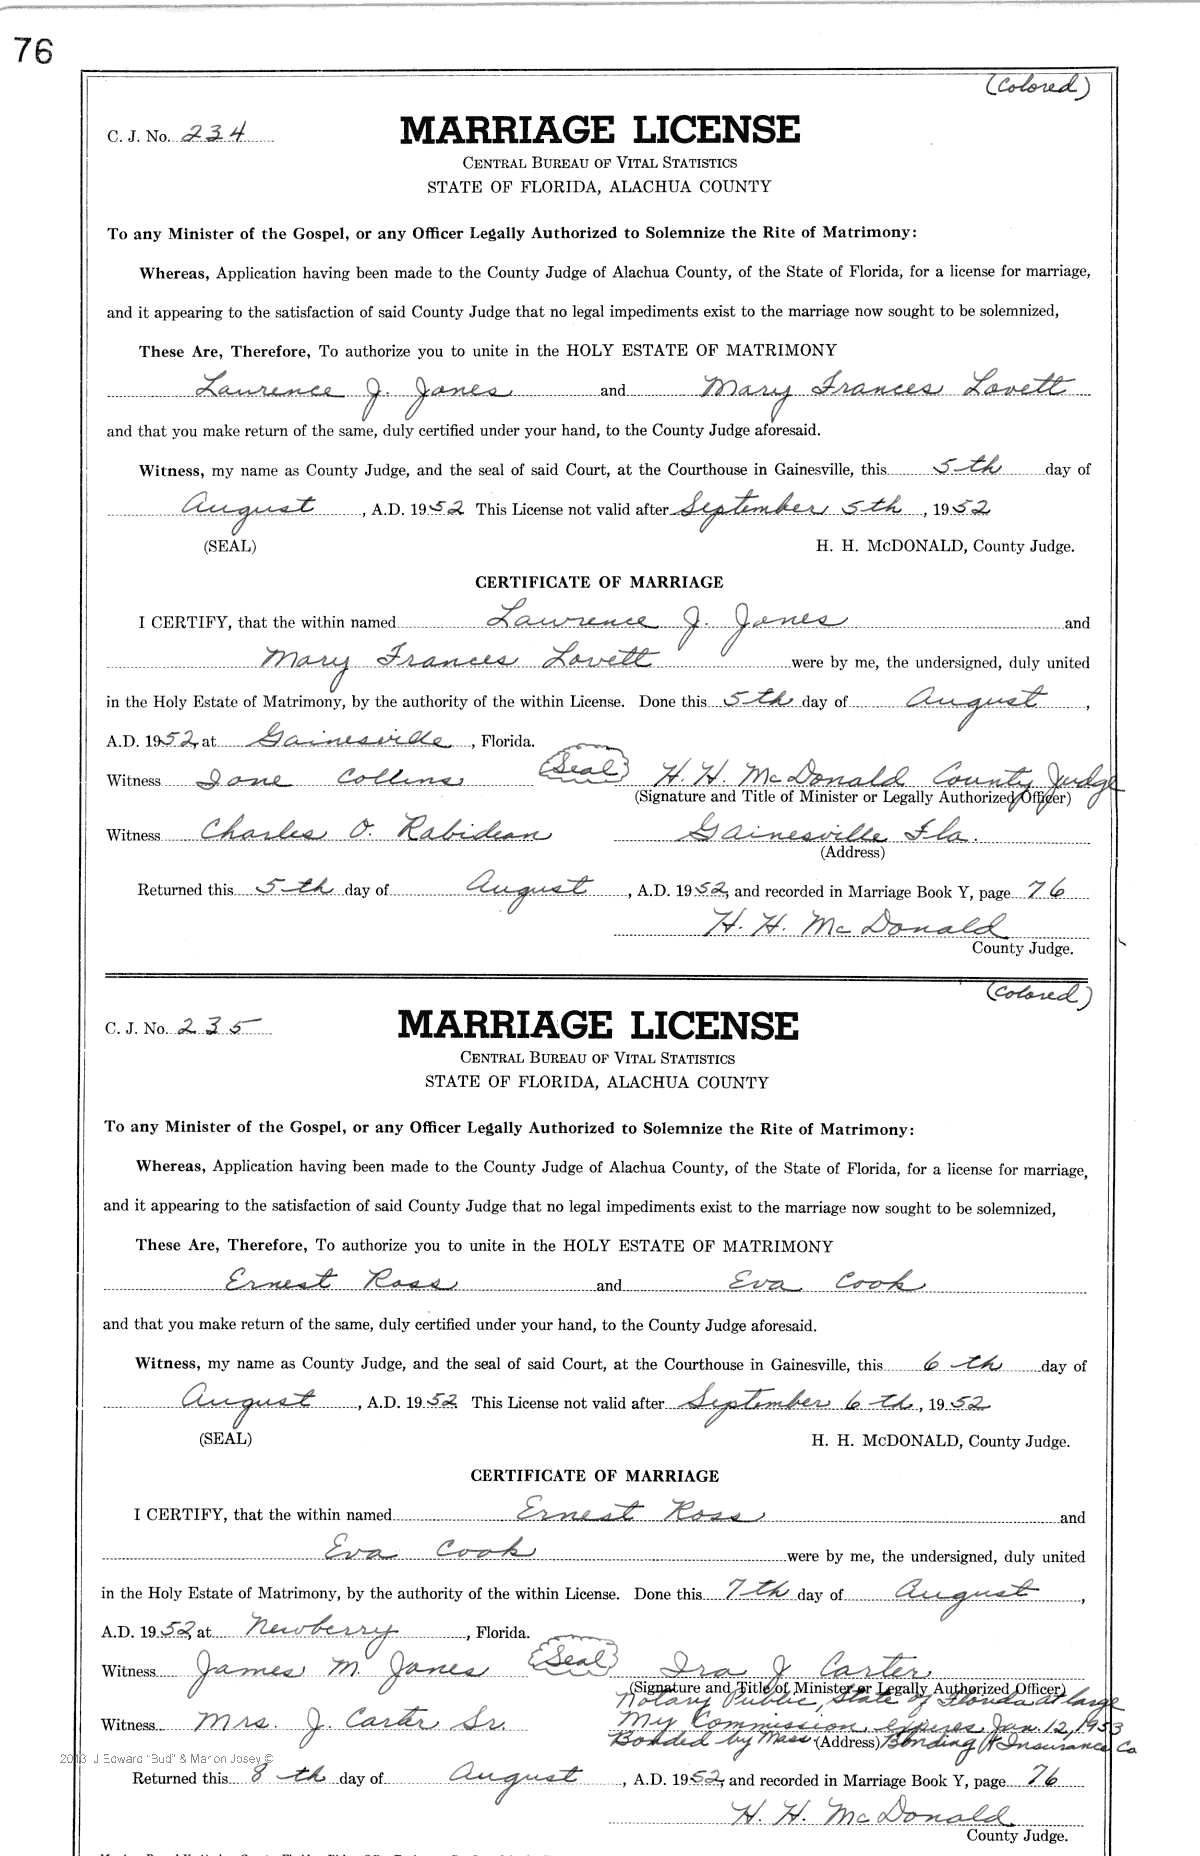 76
(Colored)
C. J. No. 234
MARRIAGE LICENSE
CENTRAL BUREAU OF VITAL STATISTICS
STATE OF FLORIDA, ALACHUA COUNTY
To any Minister of the Gospel, or any Officer Legally Authorized to Solemnize the Rite of Matrimony:
Whereas, Application having been made to the County Judge of Alachua County, of the State of Florida, for a license for marriage,
and it appearing to the satisfaction of said County Judge that no legal impediments exist to the marriage now sought to be solemnized,
These Are, Therefore, To authorize you to unite in the HOLY ESTATE OF MATRIMONY
Lawrence J. Jones and Mary Frances Lovett
and that you make return of the same, duly certified under your hand, to the County Judge aforesaid.
Witness, my name as County Judge, and the seal of said Court, at the Courthouse in Gainesville, this 5th day of
August, A.D. 1952 This License not valid after September 5th, 1952
(SEAL) H. H. McDONALD, County Judge.
CERTIFICATE OF MARRIAGE
I CERTIFY, that the within named Lawrence J. Jones and
Mary Frances Lovett were by me, the undersigned, duly united
in the Holy Estate of Matrimony, by the authority of the within License. Done this 5th day of August,
A.D. 1952, at Gainesville, Florida.
Witness Ione Collins (Seal) H. H. McDonald County Judge
(Signature and Title of Minister or Legally Authorized Officer)
Witness Charles O. Rabidean Gainesville Fla.
(Address)
Returned this 5th day of August, A.D. 1952, and recorded in Marriage Book Y, page 76
H. H. McDonald
County Judge.
(Colored)
C. J. No. 235
MARRIAGE LICENSE
CENTRAL BUREAU OF VITAL STATISTICS
STATE OF FLORIDA, ALACHUA COUNTY
To any Minister of the Gospel, or any Officer Legally Authorized to Solemnize the Rite of Matrimony:
Whereas, Application having been made to the County Judge of Alachua County, of the State of Florida, for a license for marriage,
and it appearing to the satisfaction of said County Judge that no legal impediments exist to the marriage now sought to be solemnized,
These Are, Therefore, To authorize you to unite in the HOLY ESTATE OF MATRIMONY
Ernest Ross and Eva Cook
and that you make return of the same, duly certified under your hand, to the County Judge aforesaid.
Witness, my name as County Judge, and the seal of said Court, at the Courthouse in Gainesville, this 6th day of
August, A.D. 1952 This License not valid after September 6th, 1952
(SEAL) H. H. McDONALD, County Judge.
CERTIFICATE OF MARRIAGE
I CERTIFY, that the within named Ernest Ross and
Eva Cook were by me, the undersigned, duly united
in the Holy Estate of Matrimony, by the authority of the within License. Done this 7th day of August,
A.D. 1952, at Newberry, Florida.
Witness James M. Jones (Seal) Ira J Carter
(Signature and Title of Minister or Legally Authorized Officer)
Notary Public, State of Florida at large
Witness Mrs. J. Carter Sr. My Commission expires Jan. 12, 1953
Bonded by Mass (Address) Bonding & Insurance Co
2013 J Edward "Bud" & Marion Josey ©
Returned this 8th day of August, A.D. 1952, and recorded in Marriage Book Y, page 76
H. H. McDonald
County Judge.